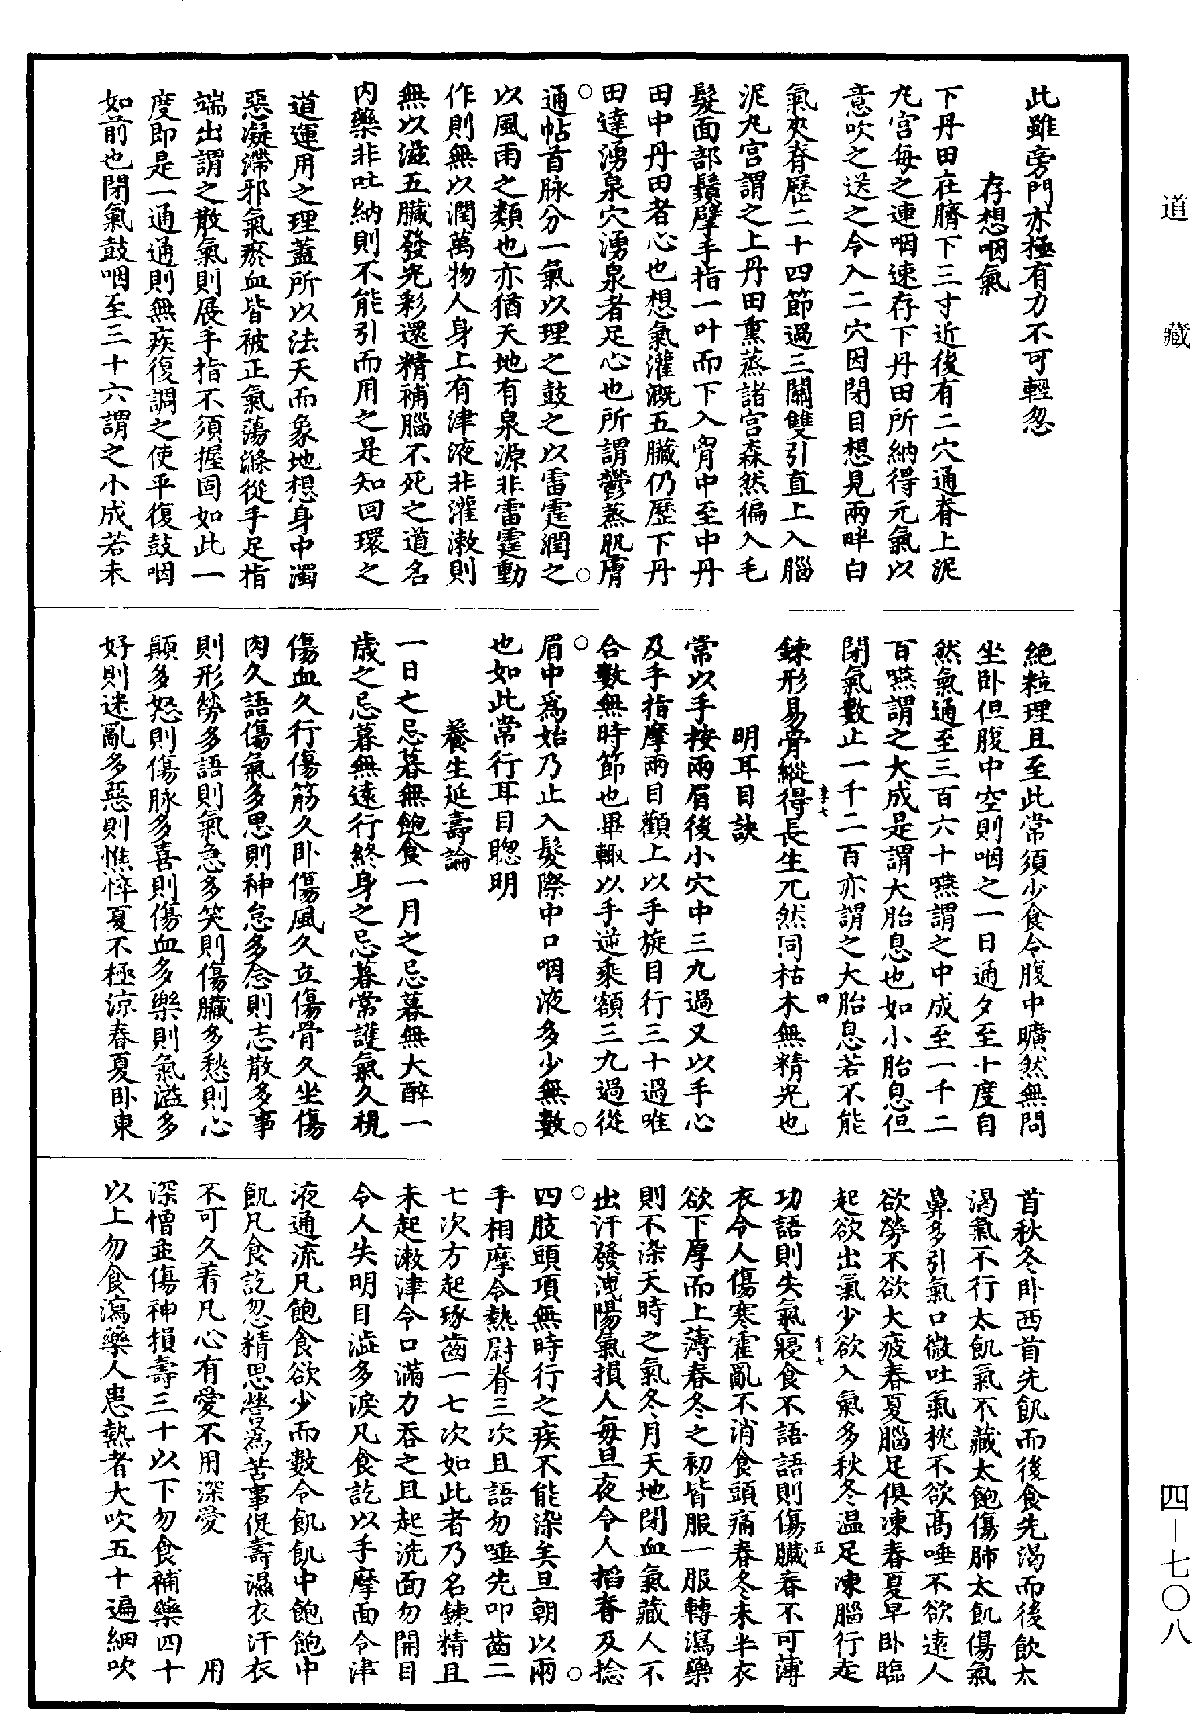 道藏
四—七〇八
此雖旁門亦極有力不可輕忽
存想咽氣
下丹田在臍下三寸近後有二穴通脊上泥
丸宮每之連咽速存下丹田所納得元氣以
意吹之送之令入二穴因閉目想見兩畔白
氣夾脊歷二十四節過三關雙引直上入腦
泥丸宮謂之上丹田熏蒸諸宮森然徧入毛
髮面部鬚臂手指一叶而下入胷中至中丹
田中丹田者心也想氣灌溉五臟仍歷下丹
田達湧泉穴湧泉者足心也所謂鬱蒸肌膚
通帖首脉分一氣以理之鼓之以雷霆潤之
以風雨之類也亦猶天地有泉源非雷霆動
作則無以潤萬物人身上有津液非灌漱則
無以滋五臟發光彩還精補腦不死之道名
內藥非吐納則不能引而用之是知回環之
道運用之理蓋所以法天而象地想身中濁
惡凝滯邪氣瘀血皆被正氣蕩滌從手足指
端出謂之散氣則展手指不須握固如此一
度即是一通通則無疾復調之使平復鼓咽
如前也閉氣鼓咽至三十六謂之小成若未
絕粒理且至此常須少食令腹中曠然無問
坐卧但腹中空則咽之一日通夕至十度自
然氣通至三百六十嚥謂之中成至一千二
百嚥謂之大成是謂大胎息也如小胎息但
閉氣數止一千二百亦謂之大胎息若不能
鍊形易骨縱得長生兀然同枯木無精光也
明耳目訣
常以手按兩眉後小穴中三九過又以手心
及手指摩兩目顴上以手旋目行三十過唯
合數無時節也畢輙以手逆乘額三九過從
眉中為始乃止入髮際中口咽液多少無數
也如此常行耳目聰明
養生延壽論
一日之忌暮無飽食一月之忌暮無大醉一
歲之忌暮無遠行終身之忌暮常護氣久視
傷血久行傷筋久卧傷風久立傷骨久坐傷
肉久語傷氣多思則神怠多念則志散多事
則形勞多語則氣急多笑則傷臟多愁則心
顛多怒則傷脉多喜則傷血多樂則氣溢多
好則迷亂多惡則憔悴夏不極涼春夏卧東
首秋冬卧西首先飢而後食先渴而後飲太
渴氣不行太飢氣不藏太飽傷肺太飢傷氣
鼻多引氣口微吐氣枕不欲高唾不欲遠人
欲勞不欲大疲春夏腦足俱凍春夏早卧臨
起欲出氣少欲入氣多秋冬溫足凍腦行走
功語則失氣寢食不語語則傷臟春不可薄
衣令人傷寒霍亂不消食頭痛春冬未半衣
欲下厚而上薄春冬之初皆服一服轉瀉藥
則不染天時之氣冬月天地閉血氣藏人不
出汗發洩陽氣損人每旦夜令人搯脊及捻
四肢頭項無時行之疾不能染矣旦朝以兩
手相摩令熱尉脊三次且語勿唾先叩齒二
七次方起琢齒一七次如此者乃名鍊精且
未起漱津令口滿力吞之且起洗面勿開目
令人失明目澁多淚凡食訖以手摩面令津
液通流凡飽食欲少而數令飢飢中飽飽中
飢凡食訖忽精思營為苦事促壽濕衣汗衣
不可久着凡心有愛不用深愛 用
深憎並傷神損壽三十以下勿食補藥四十
以上勿食瀉藥人患熱者大吹五十遍細吹